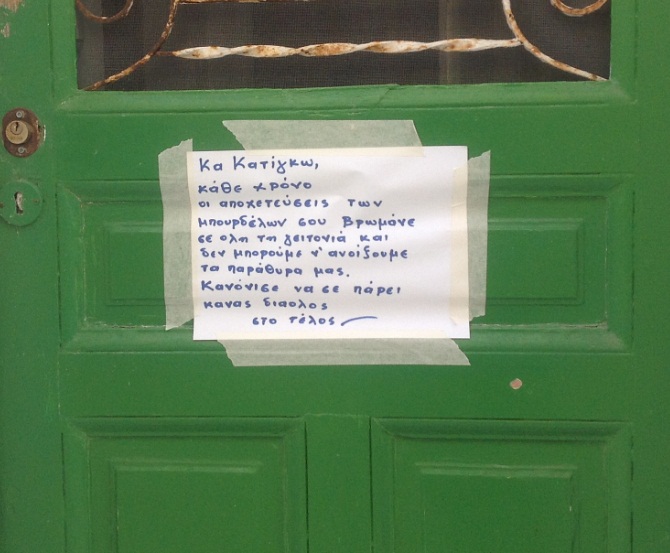 Κα Κατίγκω,
κάθε χρόνο
οι αποχετεύσεις των
μπουρδέλων σου βρωμάνε
σε όλη τη γειτονιά και
δεν μπορούμε ν' ανοίξουμε
τα παράθυρα μας.
Κανόνισε να σε πάρει
κανας διαολος
στο τέλος